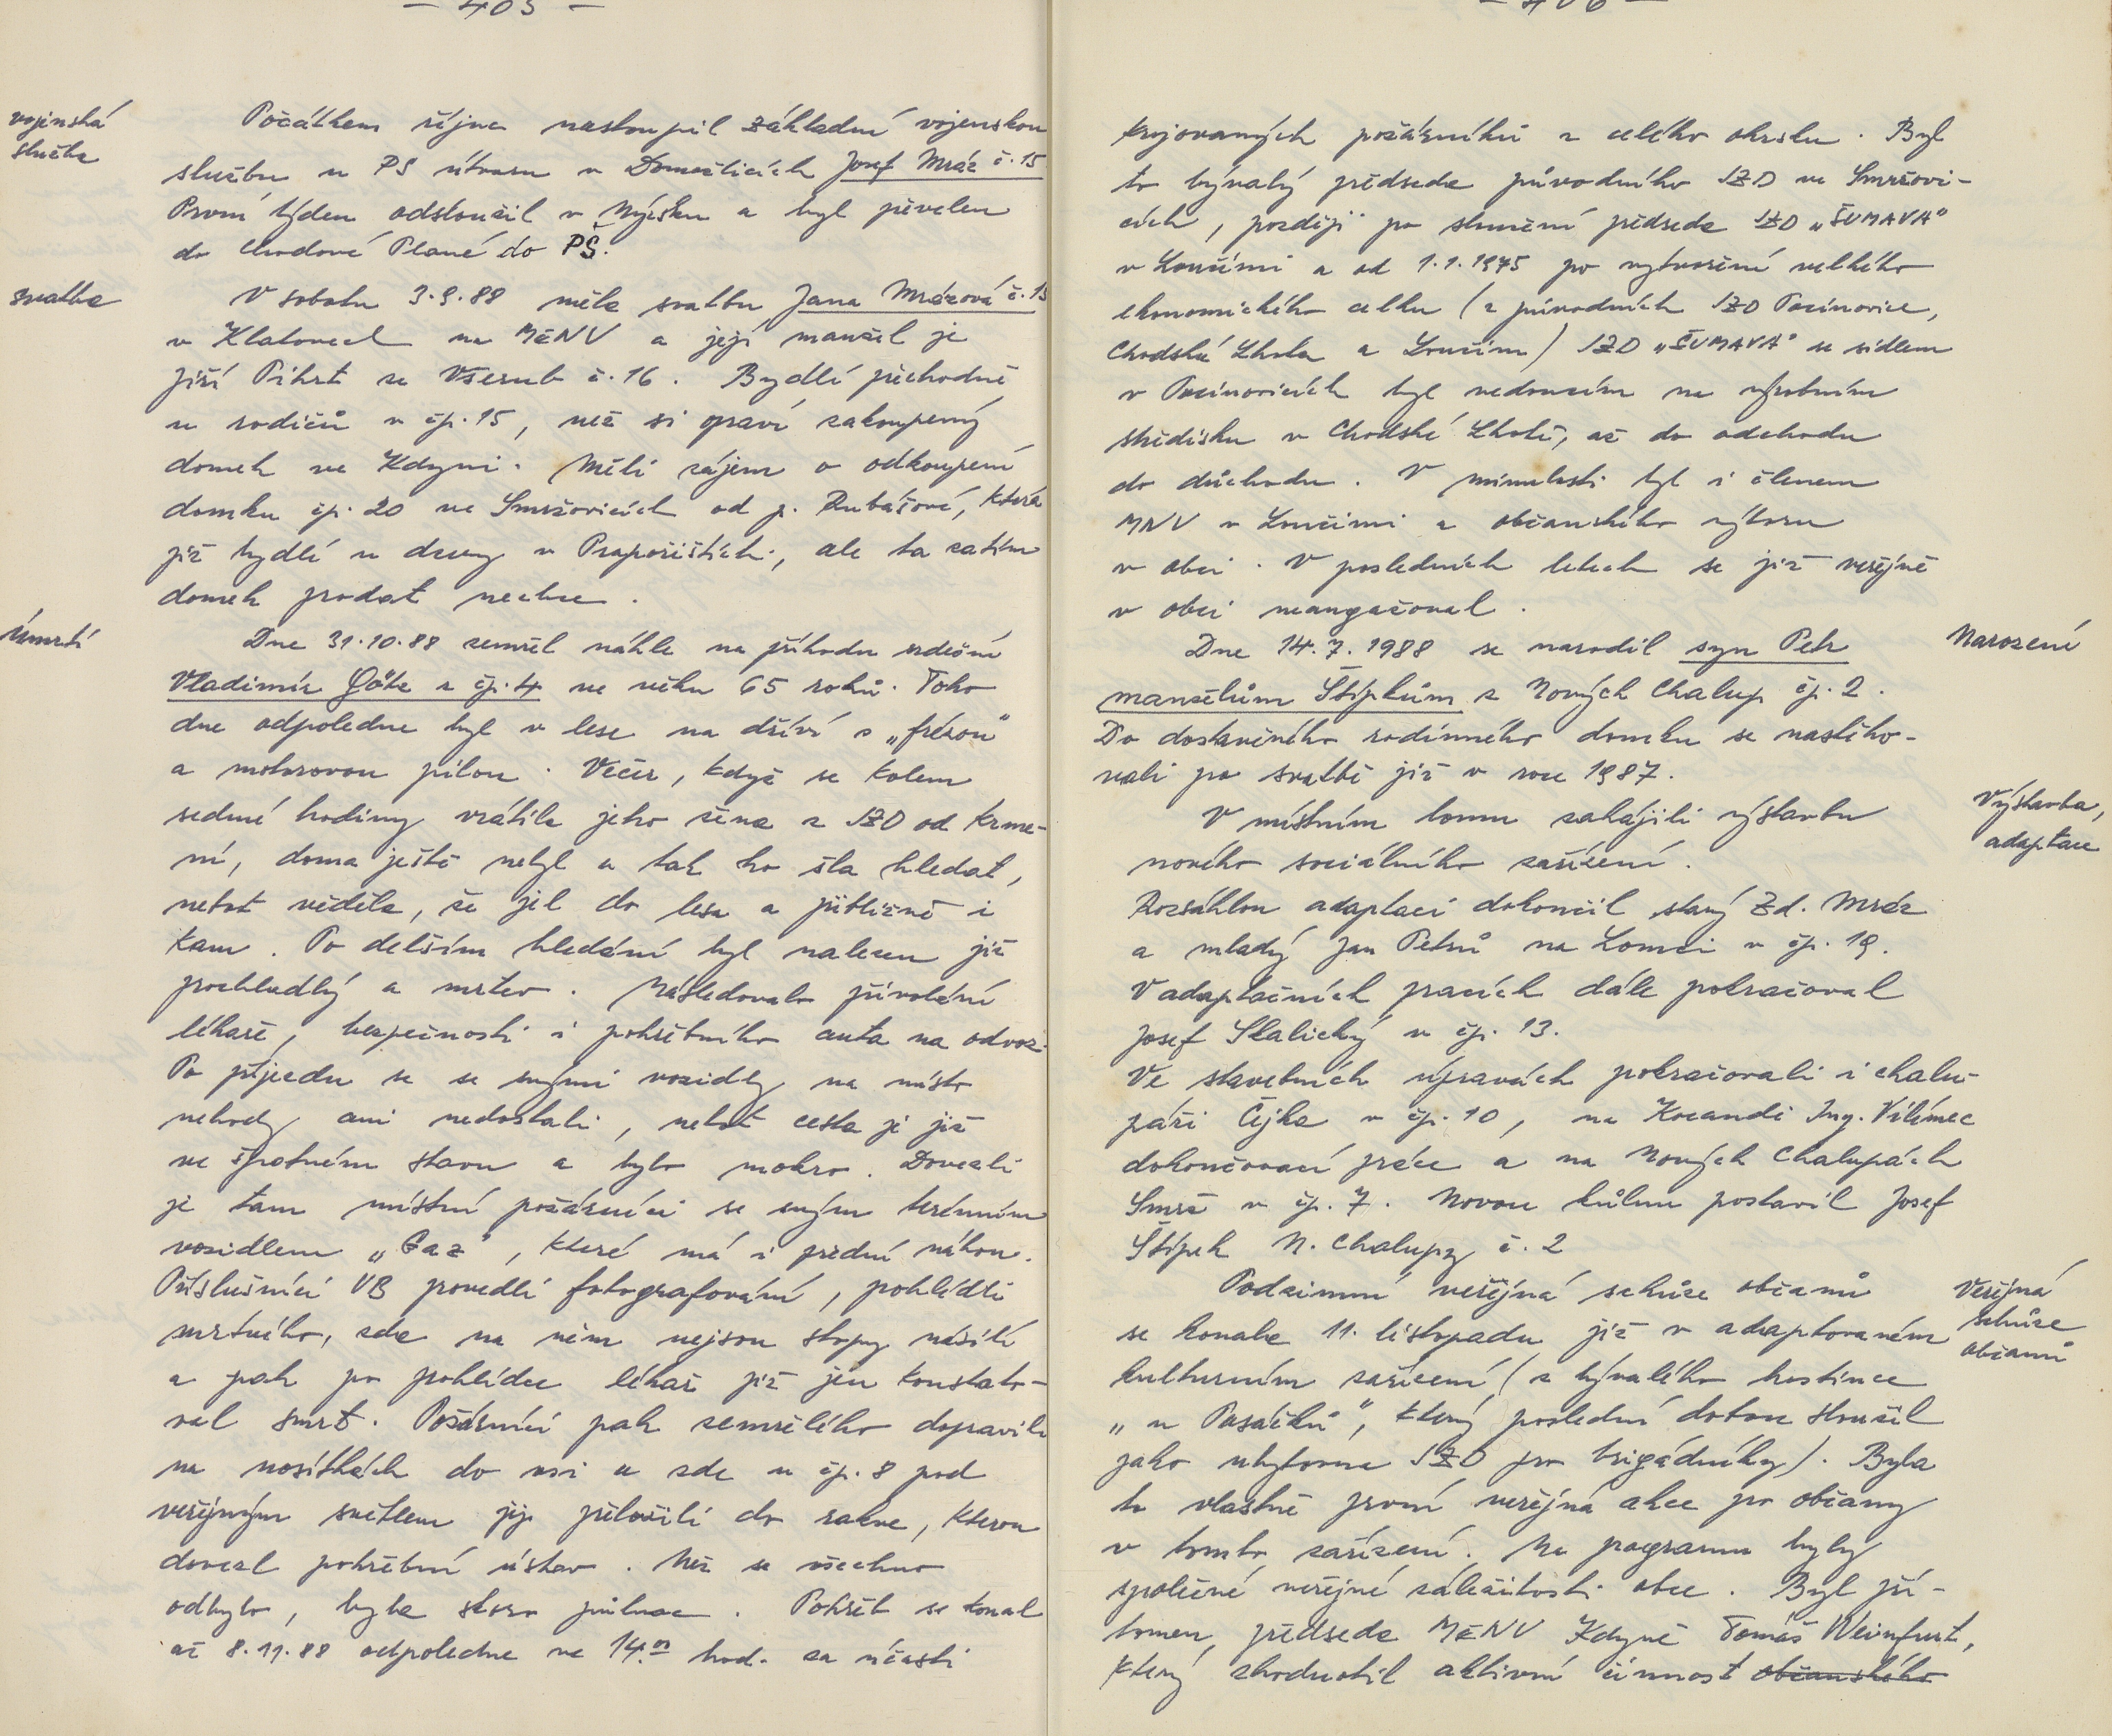 — 405 —
vojenská
služba
Počátkem října nastoupil základní vojenskou
službu u PS útvaru v Domažlicích Josef Mráz č. 15
První týden odsloužil v Nýrsku a byl převelen
do Chodové Plané do PŠ.
svatba
V sobotu 3.9.88 měla svatbu Jana Mrázová č. 15
v Klatovech na MěNV a její manžel je
Jiří Pihrt ze Všerub č. 16. Bydlí přechodně
u rodičů v čp. 15, než si opraví zakoupený
domek ve Kdyni. Měli zájem o odkoupení
domku čp. 20 ve Smržovicích od p. Rubášové, která
již bydlí u dcery v Prapořištích, ale ta zatím
domek prodat nechce.
Úmrtí
Dne 31.10.88 zemřel náhle na příhodu srdeční
Vladimír Götz z čp. 4 ve věku 65 roků. Toho
dne odpoledne byl v lese na dříví s „frézou"
a motorovou pilou. Večer, když se kolem
sedmé hodiny vrátila jeho žena z JZD od krme-
ní, doma ještě nebyl a tak ho šla hledat,
neboť věděla, že jel do lesa a přibližně i
kam. Po delším hledání byl nalezen již
prochladlý a mrtev. Následovalo přivolání
lékaře, bezpečnosti i pohřebního auta na odvoz.
Po příjezdu se se svými vozidly na místo
nehody ani nedostali, neboť cesta je již
ve špatném stavu a bylo mokro. Dovezli
je tam místní požárníci se svým terénním
vozidlem „Gaz", které má i přední náhon.
Příslušníci VB provedli fotografování, pohlédli
mrtvého, zda na něm nejsou stopy násilí
a pak po prohlídce lékař již jen konstato-
val smrt. Požárníci pak zemřelého dopravili
na nosítkách do vsi a zde u čp. 8 pod
veřejným světlem jej přeložili do rakve, kterou
dovezl pohřební ústav. Než se všechno
odbylo, byla skoro půlnoc. Pohřeb se konal
až 8.11.88 odpoledne ve 14.00 hod. za účasti
— 406 —
krojovaných požárníků z celého okrsku. Byl
to bývalý předseda původního JZD ve Smržovi-
cích, později po sloučení předseda JZD „ŠUMAVA"
v Loučimi a od 1.1.1975 po vytvoření velkého
ekonomického celku (z původních JZD Pocinovice,
Chodská Lhota a Loučim) JZD „ŠUMAVA" se sídlem
v Pocinovicích byl vedoucím na výrobním
středisku v Chodské Lhotě, až do odchodu
do důchodu. V minulosti byl i členem
MNV v Loučimi a občanského výboru
v obci. V posledních letech se již veřejně
v obci neangažoval.
Narození
Dne 14.7.1988 se narodil syn Petr
manželům Štípkům z Nových Chalup čp. 2.
Do dostavěného rodinného domku se nastěho-
vali po svatbě již v roce 1987.
Výstavba,
adaptace
V místním lomu zahájili výstavbu
nového sociálního zařízení.
Rozsáhlou adaptaci dokončil starý Zd. Mráz
a mladý Jan Petrů na Lomci v čp. 19.
V adaptačních pracích dále pokračoval
Josef Skalický v čp. 13.
Ve stavebních úpravách pokračovali i chalu-
páři Čejka v čp. 10, na Kocandě Ing. Vilímec
dokončovací práce a na Nových Chalupách
Smrž v čp. 7. Novou kůlnu postavil Josef
Štípek N. Chalupy č. 2
Veřejná
schůze
občanů
Podzimní veřejná schůze občanů
se konala 11. listopadu již v adaptovaném
kulturním zařízení (z bývalého hostince
„u Pasáčků", který poslední dobou sloužil
jako ubytovna JZD pro brigádníky). Byla
to vlastně první veřejná akce pro občany
v tomto zařízení. Na programu byly
společné veřejné záležitosti obce. Byl pří-
tomen předseda MěNV Kdyně Tomáš Weinfurt,
který zhodnotil aktivní činnost občanského